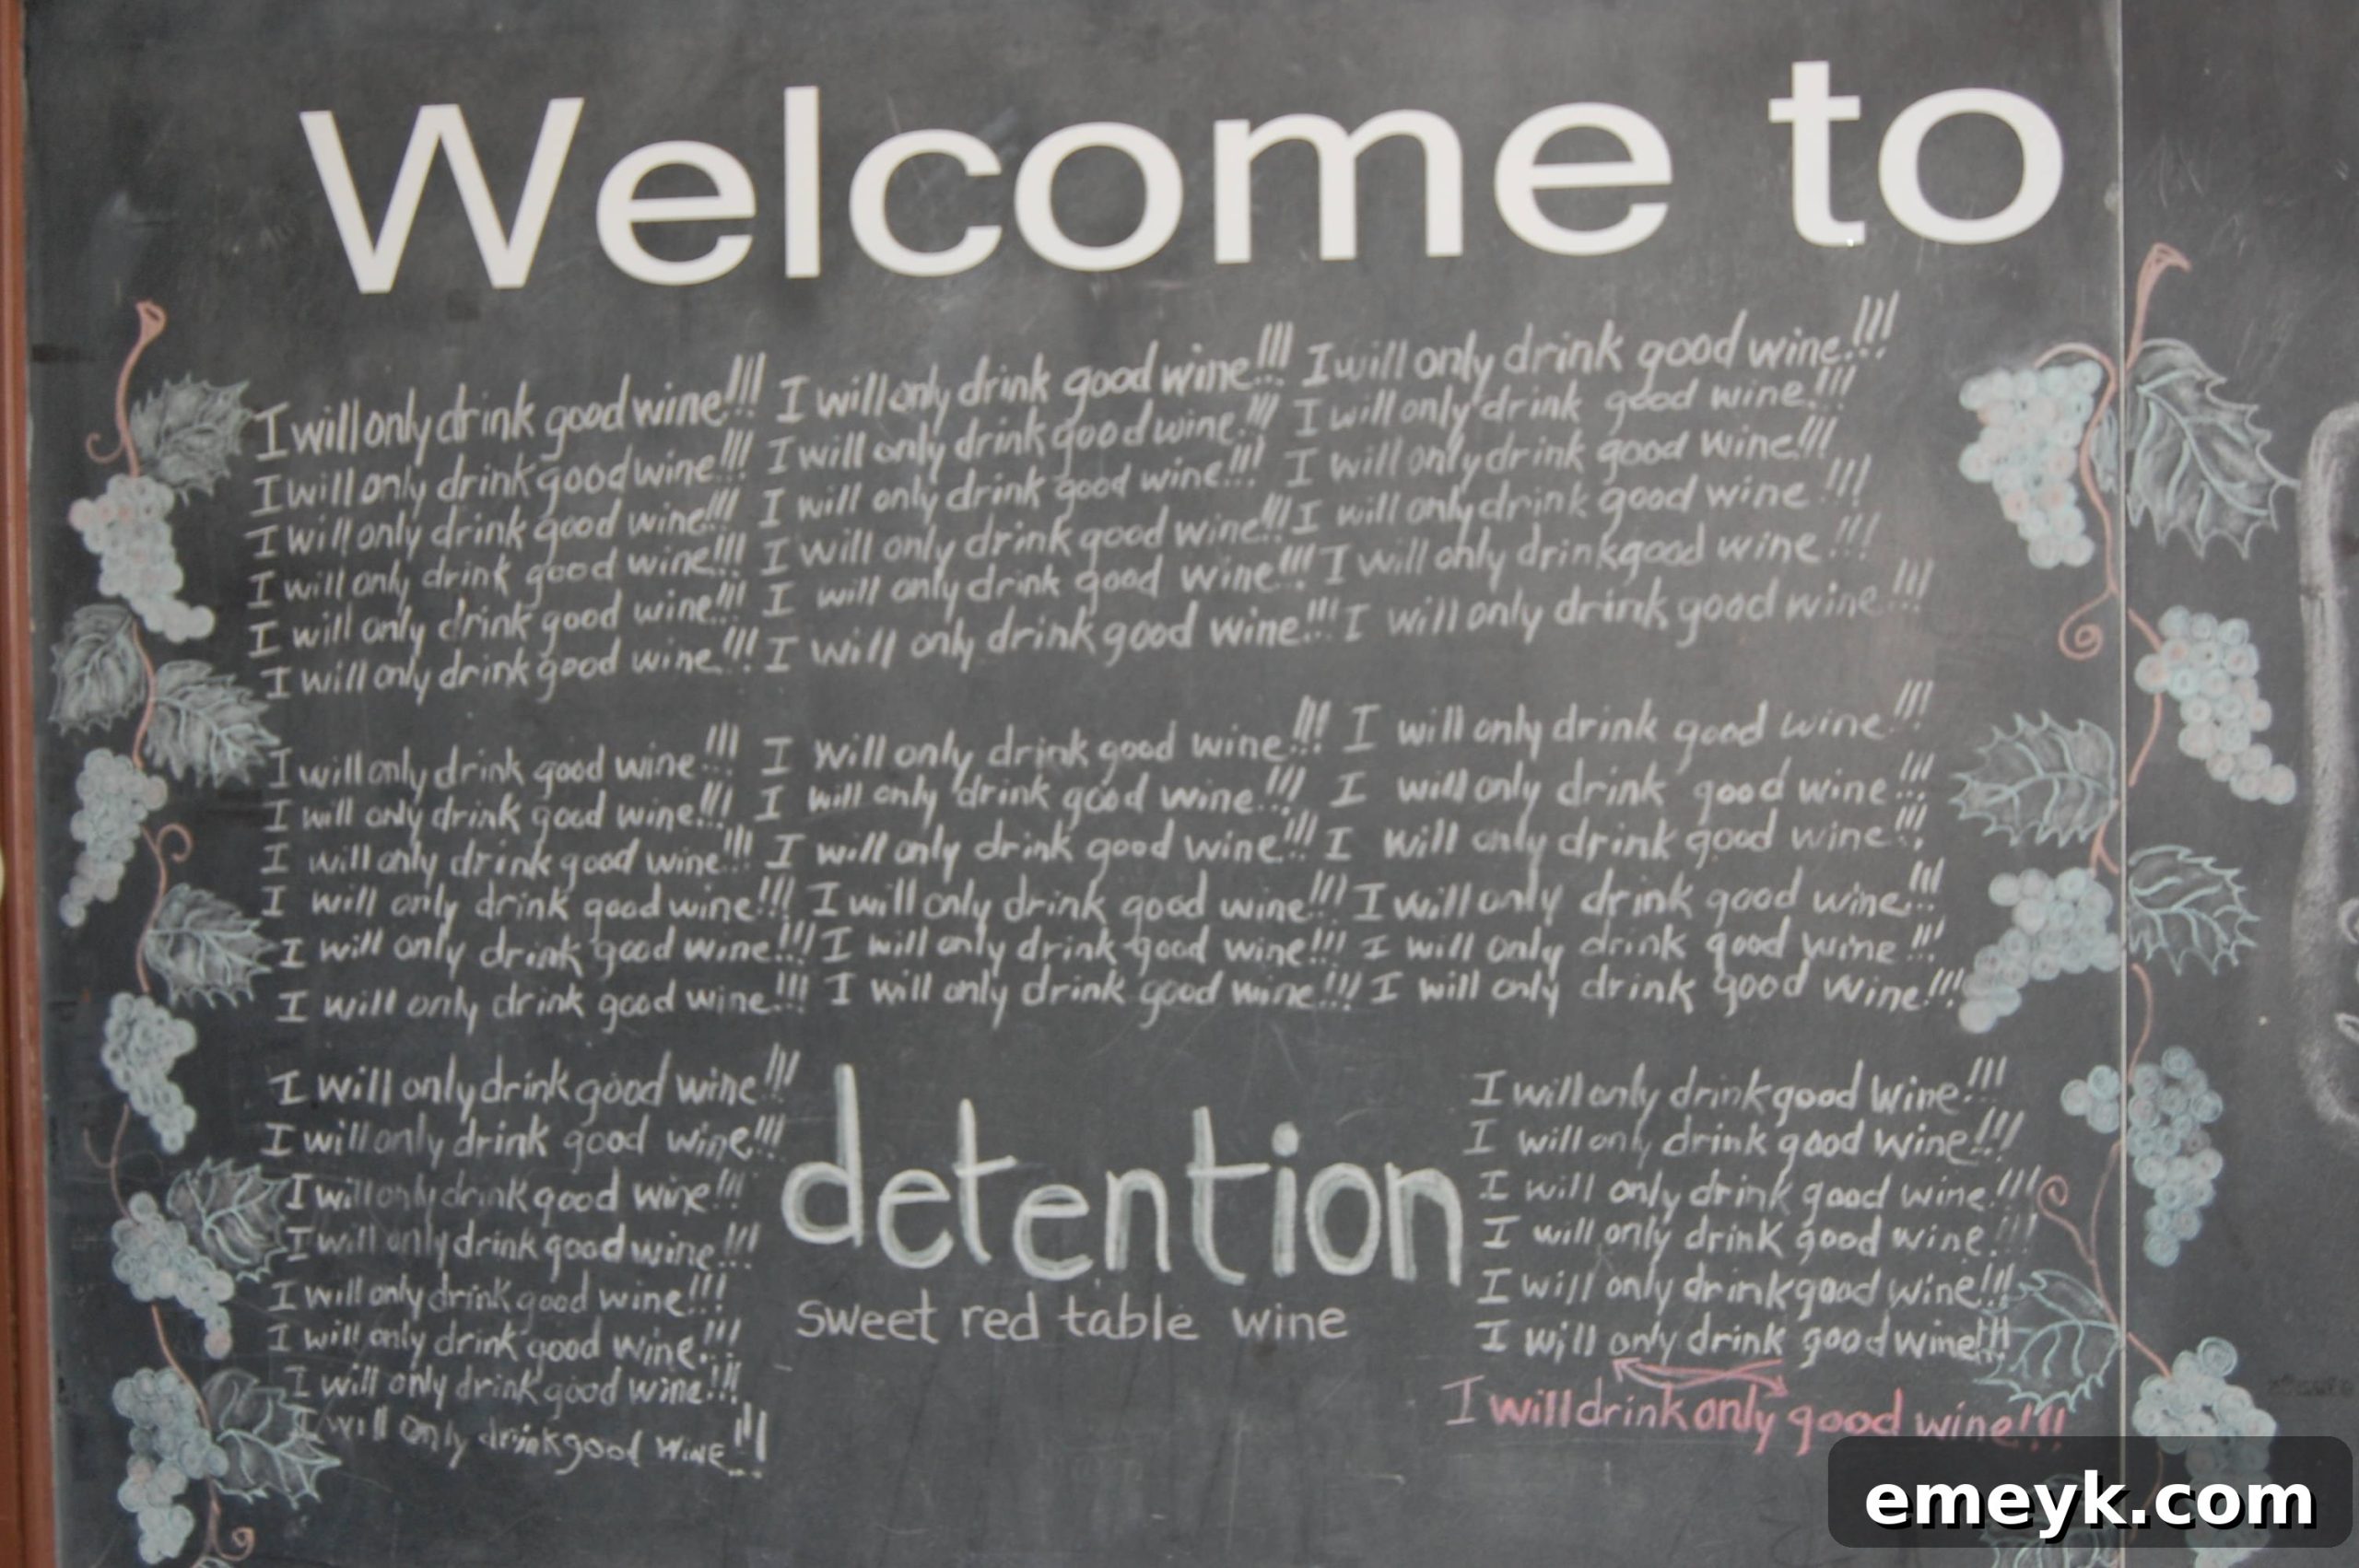 Welcome to
I will only drink good wine!!! I will only drink good wine!!! I will only drink good wine!!!
I will only drink good wine!!! I will only drink good wine!!! I will only drink good wine!!!
I will only drink good wine!!! I will only drink good wine!!! I will only drink good wine!!!
I will only drink good wine!!! I will only drink good wine!!! I will only drink good wine!!!
I will only drink good wine!!! I will only drink good wine!!! I will only drink good wine!!!
I will only drink good wine!!! I will only drink good wine!!! I will only drink good wine!!!
I will only drink good wine!!! I will only drink good wine!!! I will only drink good wine!!!
I will only drink good wine!!! I will only drink good wine!!! I will only drink good wine!!!
I will only drink good wine!!! I will only drink good wine!!! I will only drink good wine!!!
I will only drink good wine!!! I will only drink good wine!!! I will only drink good wine!!!
I will only drink good wine!!! I will only drink good wine!!! I will only drink good wine!!!
I will only drink good wine!!! I will only drink good wine!!! I will only drink good wine!!!
I will only drink good wine!!!
I will only drink good wine!!!
I will only drink good wine!!!
I will only drink good wine!!!
I will only drink good wine!!!
I will only drink good wine!!!
I will only drink good wine!!!
I will only drink good wine!!!
detention
sweet red table wine
I will only drink good wine!!!
I will only drink good wine!!!
I will only drink good wine!!!
I will only drink good wine!!!
I will only drink good wine!!!
I will only drink good wine!!!
I will drink only good wine!!!
emeyk.com